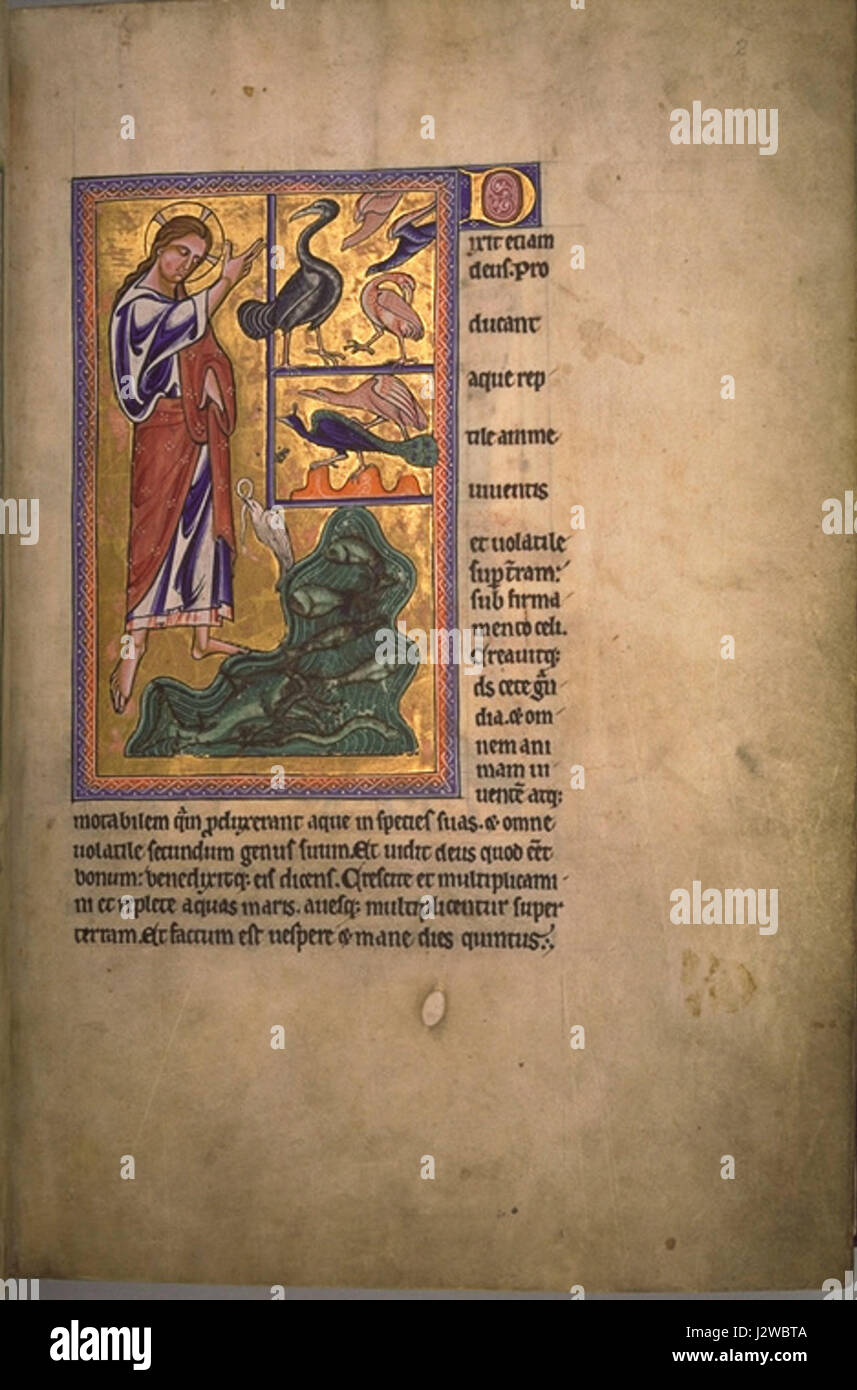 2
D
ixit etiam
deus: Pro
ducant
aque rep
tile anime
uiuentis
et uolatile
sup t̄ram:
sub firma
mento celi.
Creauitq:
ds cete g̃n
dia. & om
nem ani
mam ui
uentē atq:
motabilem q̃m pduxerant aque in species suas. & omne
uolatile secundum genus suum. Et uidit deus quod eēt
bonum: benedixitq: eis dicens. Crescite et multiplicami
ni et replete aquas maris. auesq: multiplicentur super
terram. Et factum est uespere & mane dies quintus.
alamy
alamy
alamy
alamy
a a a a a a a a
alamy
Image ID: J2WBTA
www.alamy.com